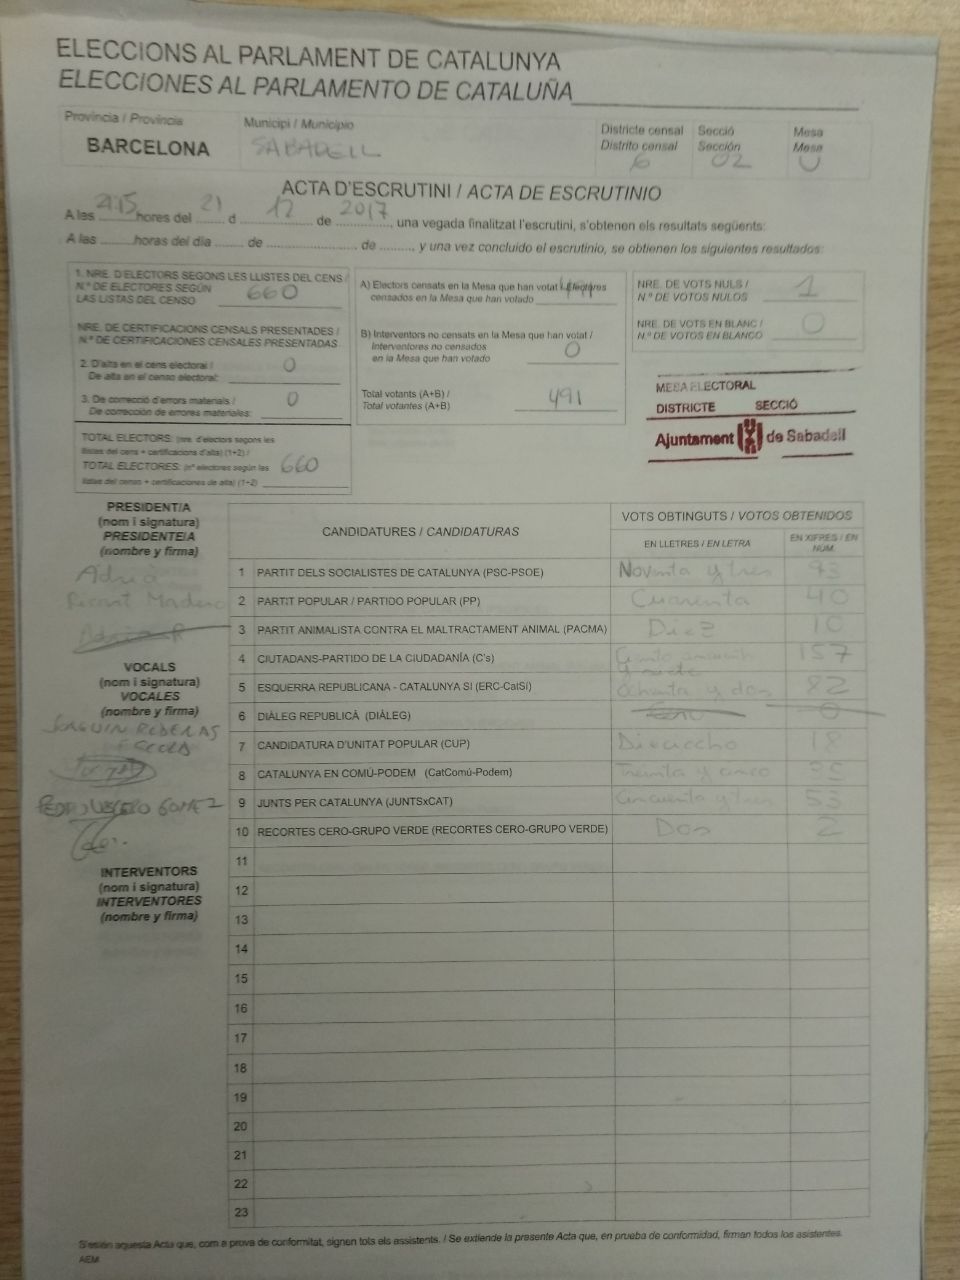 ELECCIONS AL PARLAMENT DE CATALUNYA
ELECCIONES AL PARLAMENTO DE CATALUÑA
Província / Provincia
BARCELONA
Municipi / Municipio
SABADELL
Districte censal
Distrito censal
6
Secció
Sección
02
Mesa
Mesa
U
ACTA D'ESCRUTINI / ACTA DE ESCRUTINIO
A les 21:15 hores del 21 d 12 de 2017, una vegada finalitzat l'escrutini, s'obtenen els resultats següents:
A las ........ horas del día ....... de ........................ de ........, y una vez concluido el escrutinio, se obtienen los siguientes resultados:
1. NRE. D'ELECTORS SEGONS LES LLISTES DEL CENS /
N.º DE ELECTORES SEGÚN
LAS LISTAS DEL CENSO 660
NRE. DE CERTIFICACIONS CENSALS PRESENTADES /
N.º DE CERTIFICACIONES CENSALES PRESENTADAS
2. D'alta en el cens electoral /
De alta en el censo electoral: 0
3. De correcció d'errors materials /
De corrección de errores materiales: 0
TOTAL ELECTORS: (nre. d'electors segons les
llistes del cens + certificacions d'alta) (1+2) /
TOTAL ELECTORES: (nº electores según las 660
listas del censo + certificaciones de alta) (1+2)
A) Electors censats en la Mesa que han votat / Electores
censados en la Mesa que han votado
B) Interventors no censats en la Mesa que han votat /
Interventores no censados
en la Mesa que han votado 0
Total votants (A+B) /
Total votantes (A+B) 491
NRE. DE VOTS NULS /
N.º DE VOTOS NULOS 1
NRE. DE VOTS EN BLANC /
N.º DE VOTOS EN BLANCO 0
MESA ELECTORAL
DISTRICTE SECCIÓ
Ajuntament de Sabadell
PRESIDENT/A
(nom i signatura)
PRESIDENTE/A
(nombre y firma)
Adrià
Ricart
VOCALS
(nom i signatura)
VOCALES
(nombre y firma)
JOAQUIN RODENAS
GOMEZ
INTERVENTORS
(nom i signatura)
INTERVENTORES
(nombre y firma)
CANDIDATURES / CANDIDATURAS
VOTS OBTINGUTS / VOTOS OBTENIDOS
EN LLETRES / EN LETRA
EN XIFRES / EN NÚM.
1 PARTIT DELS SOCIALISTES DE CATALUNYA (PSC-PSOE) Noventa y tres 93
2 PARTIT POPULAR / PARTIDO POPULAR (PP) Cuarenta 40
3 PARTIT ANIMALISTA CONTRA EL MALTRACTAMENT ANIMAL (PACMA) Diez 10
4 CIUTADANS-PARTIDO DE LA CIUDADANÍA (C's) 157
5 ESQUERRA REPUBLICANA - CATALUNYA SÍ (ERC-CatSí) Ochenta y dos 82
6 DIÀLEG REPUBLICÀ (DIÀLEG) 0
7 CANDIDATURA D'UNITAT POPULAR (CUP) Dieciocho 18
8 CATALUNYA EN COMÚ-PODEM (CatComú-Podem) Treinta y cinco 35
9 JUNTS PER CATALUNYA (JUNTSxCAT) Cincuenta y tres 53
10 RECORTES CERO-GRUPO VERDE (RECORTES CERO-GRUPO VERDE) Dos 2
11
12
13
14
15
16
17
18
19
20
21
22
23
S'estén aquesta Acta que, com a prova de conformitat, signen tots els assistents. / Se extiende la presente Acta que, en prueba de conformidad, firman todos los asistentes.
AEM